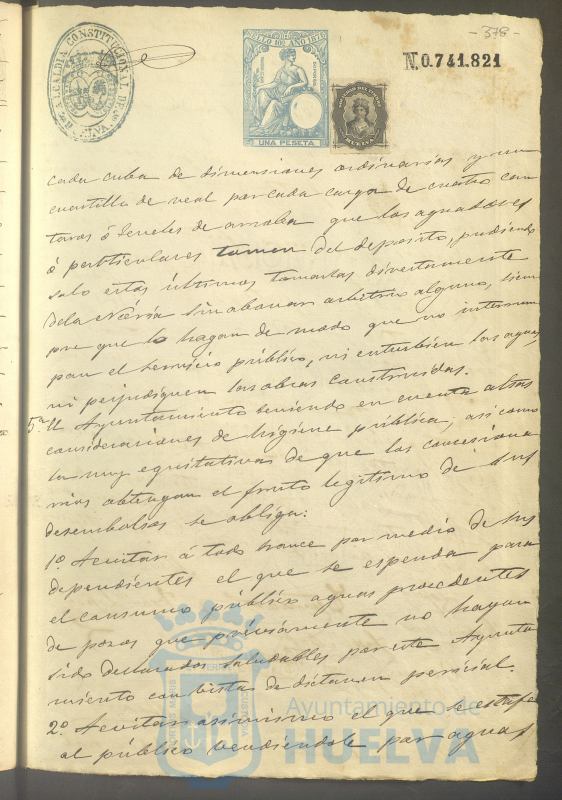 -378-
ALCALDIA CONSTITUCIONAL DE HUELVA
SELLO 11º AÑO 1875
UNA PESETA
N. 0.741.821
cada cuba de dimensiones ordinarias y un
cuartillo de real por cada carga de cuatro can
taros ó barriles de arroba que los aguadores
ó particulares tomen del deposito, pudiendo
solo estos últimos tomarlas directamente
dela Noria sin abonar arbitrio alguno, siem
pre que lo hagan de modo que no interrum
pan el servicio público, ni enturbien las aguas,
ni perjudiquen las obras construidas.
5ª El Ayuntamiento teniendo en cuenta altas
consideraciones de higiene pública, asi como
la muy equitativa de que los concesiona
rios obtengan el fruto legitimo de sus
desembolsos se obliga:
1º A evitar á todo trance por medio de sus
dependientes el que se espenda para
el consumo público aguas procedentes
de pozos que préviamente no hayan
sido declarados saludables por este Ayunta
miento con vista de dictamen pericial.
2º A evitar asimismo el que se estafe
al público vendiéndole por aguas
Ayuntamiento de
HUELVA